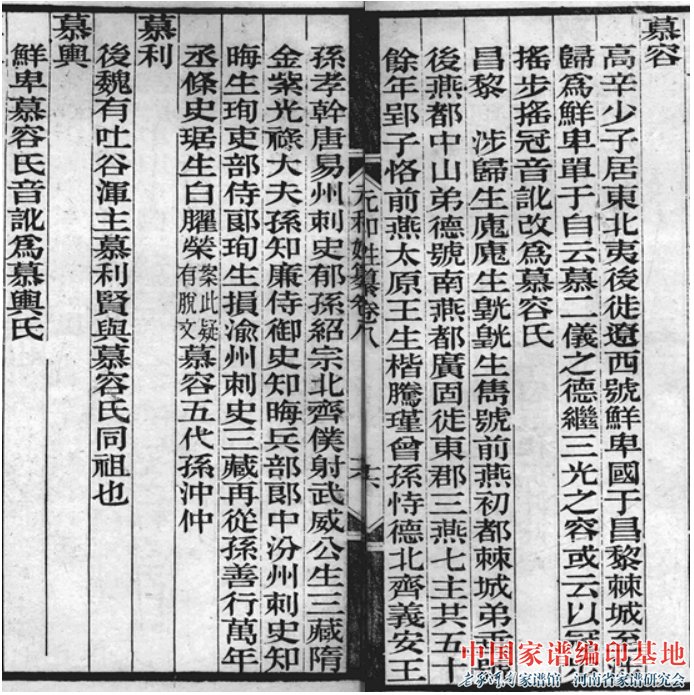 慕容
高辛少子居東北夷後徙遼西號鮮卑國于昌黎棘城至涉
歸爲鮮卑單于自云慕二儀之德繼三光之容或云以冠步
搖步搖冠音訛改爲慕容氏
昌黎 涉歸生廆廆生皝皝生雋號前燕初都棘城弟垂號
後燕都中山弟德號南燕都廣固徙東郡三燕七主共五十
餘年皝子恪前燕太原王生楷騰瑾曾孫恃德北齊義安王
元和姓纂卷八
孫孝幹唐易州刺史郁孫紹宗北齊僕射武威公生三藏隋
金紫光祿大夫孫知廉侍御史知晦兵部郎中汾州刺史知
晦生珣吏部侍郎珣生損渝州刺史三藏再從孫善行萬年
丞條史琚生白臞榮案此疑有脫文慕容五代孫沖仲
慕利
後魏有吐谷渾主慕利賢與慕容氏同祖也
慕輿
鮮卑慕容氏音訛爲慕輿氏
中国家谱编印基地
老岁月家谱馆 河南省家谱研究会